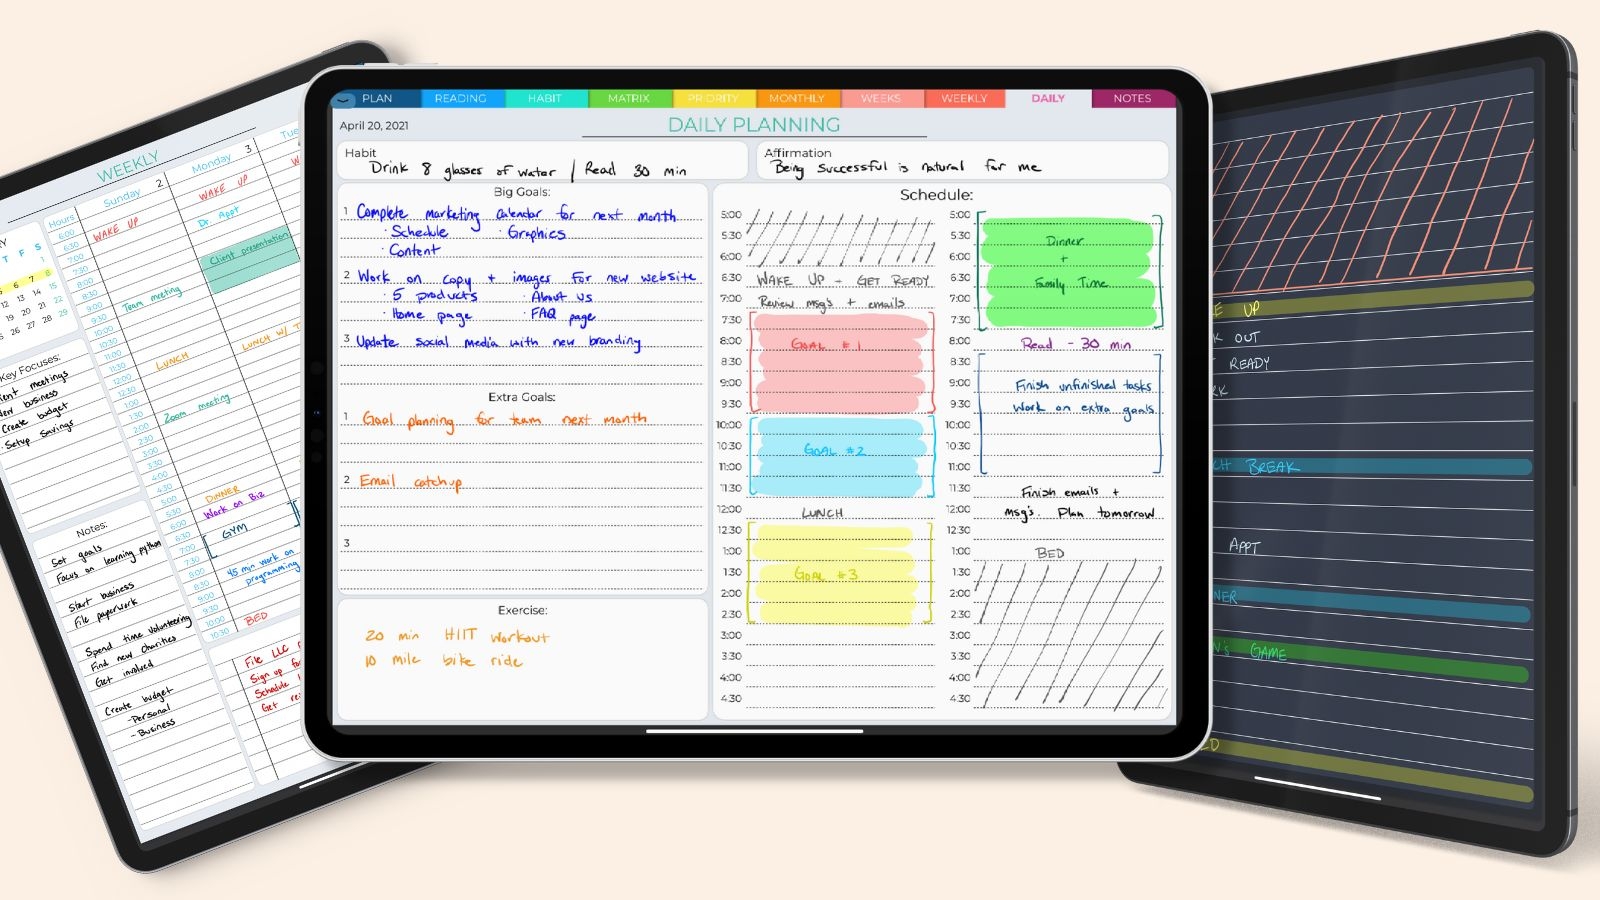 WEEKLY
Sunday 2
Monday 3
Hours
T F S
1
5 6 7 8
12 13 14 15
19 20 21 22
25 26 27 28 29
6:00
6:30
7:00
7:30
8:00
8:30
9:00
9:30
10:00
10:30
11:00
11:30
12:00
12:30
1:00
1:30
2:00
2:30
3:00
3:30
4:00
4:30
5:00
5:30
6:00
6:30
7:00
7:30
8:00
8:30
9:00
9:30
10:00
10:30
WAKE UP
Team meeting
LUNCH
Zoom meeting
DINNER
Work on Biz
GYM
45 min work on
programming
BED
WAKE UP
Dr Appt
Client presentation
LUNCH W/
Key Focuses:
meetings
business
Create budget
Setup savings
Notes:
Set goals
Focus on learning python
Start business
File paperwork
Spend time volunteering
Find new charities
Get involved
Create budget
-Personal
- Business
File LLC
Sign up
Schedule
Get
PLAN
READING
HABIT
MATRIX
PRIORITY
MONTHLY
WEEKS
WEEKLY
DAILY
NOTES
April 20, 2021
DAILY PLANNING
Habit
Drink 8 glasses of water / Read 30 min
Affirmation
Being successful is natural for me
Big Goals:
1 Complete marketing calendar for next month
· Schedule · Graphics
· Content
2 Work on copy + images for new website
· 5 products · About us
· Home page · FAQ page
3 Update social media with new branding
Extra Goals:
1 Goal planning for team next month
2 Email catchup
3
Exercise:
20 min HIIT workout
10 mile bike ride
Schedule:
5:00
5:30
6:00
6:30 WAKE UP - GET READY
7:00 Review msg's + emails
7:30
8:00 GOAL #1
8:30
9:00
9:30
10:00
10:30 GOAL #2
11:00
11:30
12:00 LUNCH
12:30
1:00
1:30 GOAL #3
2:00
2:30
3:00
3:30
4:00
4:30
5:00
5:30 Dinner
6:00 +
6:30 Family Time
7:00
7:30
8:00 Read - 30 min
8:30
9:00 Finish unfinished tasks
9:30 Work on extra goals
10:00
10:30
11:00
11:30 Finish emails +
12:00 msg's. Plan tomorrow
12:30
1:00 BED
1:30
2:00
2:30
3:00
3:30
4:00
4:30
UP
OUT
READY
BREAK
APPT
GAME